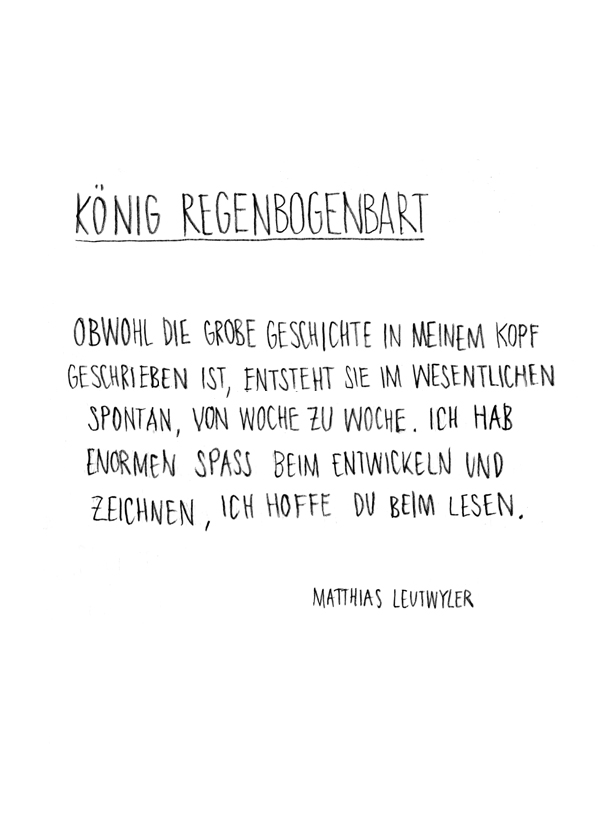 KÖNIG REGENBOGENBART
OBWOHL DIE GROBE GESCHICHTE IN MEINEM KOPF
GESCHRIEBEN IST, ENTSTEHT SIE IM WESENTLICHEN
SPONTAN, VON WOCHE ZU WOCHE. ICH HAB
ENORMEN SPASS BEIM ENTWICKELN UND
ZEICHNEN, ICH HOFFE DU BEIM LESEN.
MATTHIAS LEUTWYLER